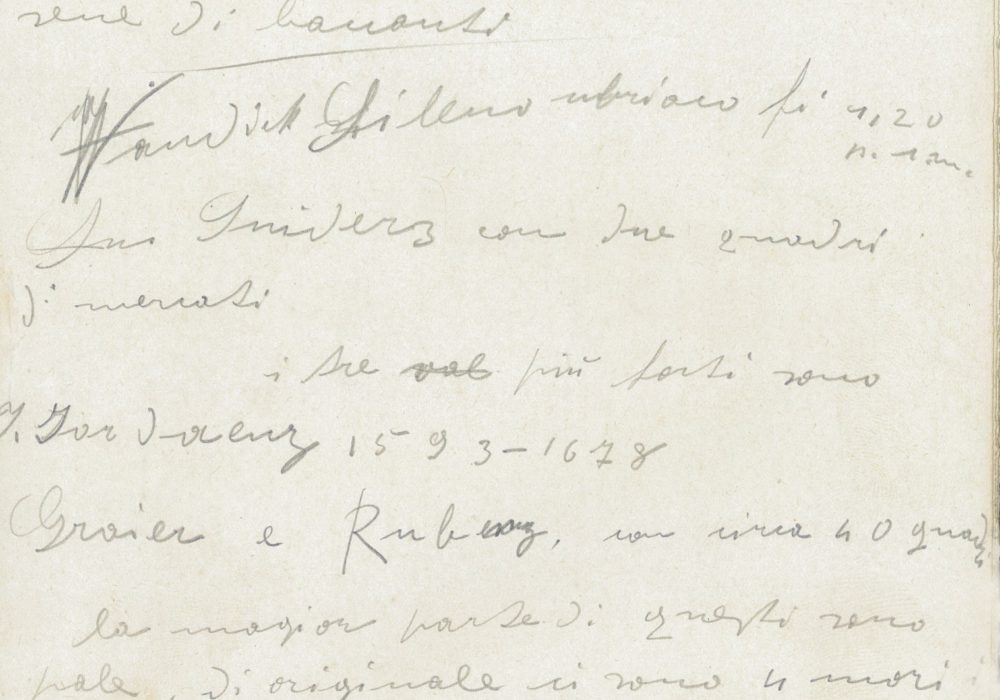 scene di baccanti
Wandick Sileno ubriaco fi 1,20
n. 1 m.
Sni Sniderz con due quadri
di mercati
i tre val più forti sono
J. Jordaenz 1593-1678
Graier e Rubenz, con circa 40 quadri
la magior parte di questi sono
pale, di originale ci sono 4 mori